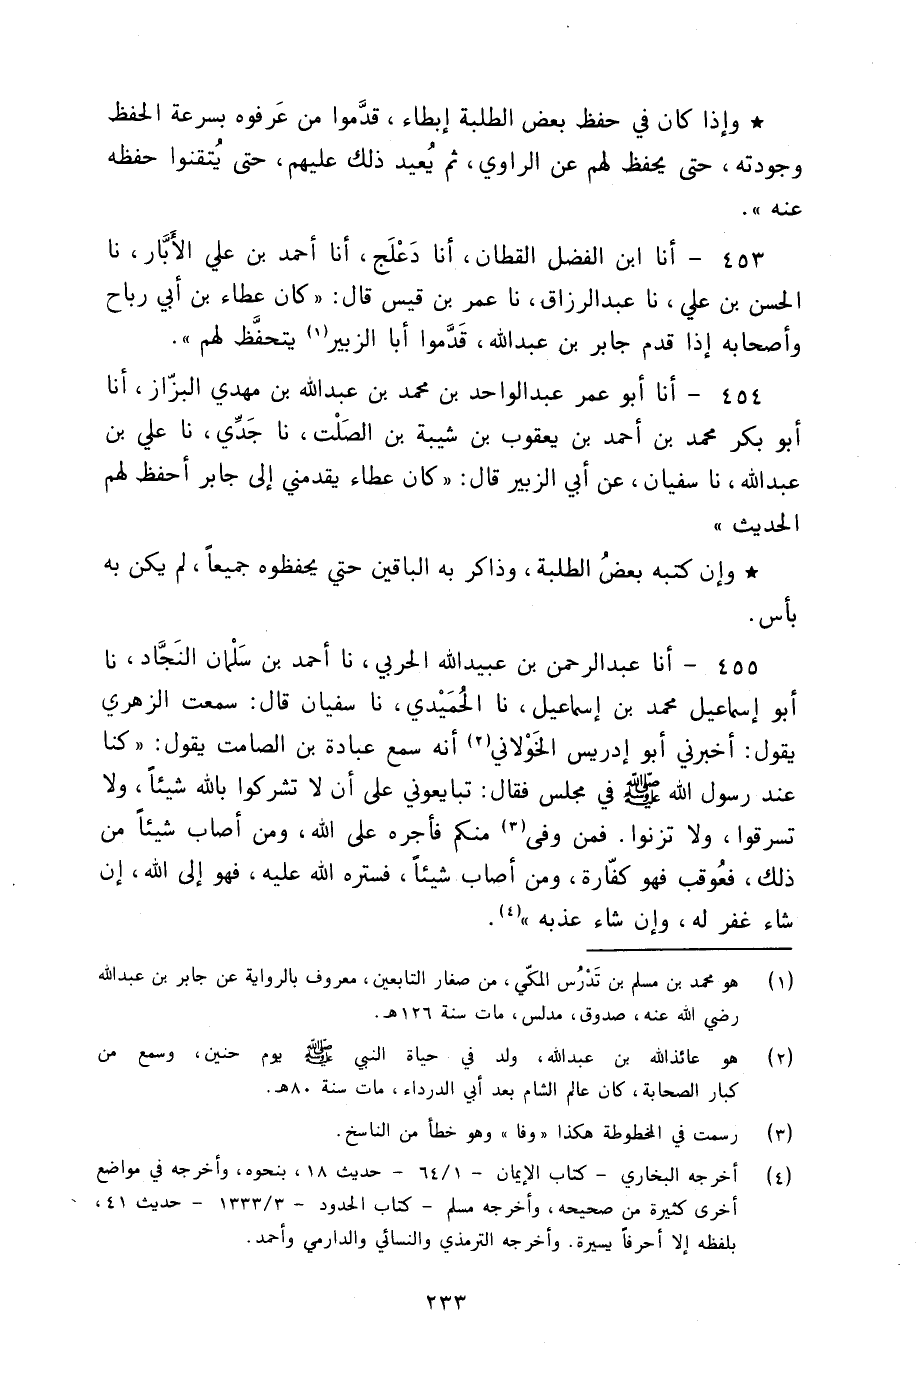 ★ وإذا كان في حفظ بعض الطلبة إبطاء ، قدَّموا من عَرفوه بسرعة الحفظ
وجودته ، حتى يحفظ لهم عن الراوي ، ثم يُعيد ذلك عليهم ، حتى يُتقنوا حفظه
عنه » .
٤٥٣ - أنا ابن الفضل القطان ، أنا دَعْلَج ، أنا أحمد بن علي الأَبَّار ، نا
الحسن بن علي ، نا عبدالرزاق ، نا عمر بن قيس قال : « كان عطاء بن أبي رباح
وأصحابه إذا قدم جابر بن عبدالله ، قَدَّموا أبا الزبير(١) يتحفَّظ لهم » .
٤٥٤ - أنا أبو عمر عبدالواحد بن محمد بن عبدالله بن مهدي البزّاز ، أنا
أبو بكر محمد بن أحمد بن يعقوب بن شيبة بن الصَلْت ، نا جَدِّي ، نا علي بن
عبدالله ، نا سفيان ، عن أبي الزبير قال : « كان عطاء يقدمني إلى جابر أحفظ لهم
الحديث »
★ وإن كتبه بعضُ الطلبة ، وذاكر به الباقين حتي يحفظوه جميعاً ، لم يكن به
بأس .
٤٥٥ - أنا عبدالرحمن بن عبيدالله الحربي ، نا أحمد بن سَلْمان النَجَّاد ، نا
أبو إسماعيل محمد بن إسماعيل ، نا الحُمَيْدي ، نا سفيان قال : سمعت الزهري
يقول : أخبرني أبو إدريس الخَوْلاني(٢) أنه سمع عبادة بن الصامت يقول : « كنا
عند رسول الله ﷺ في مجلس فقال : تبايعوني على أن لا تشركوا بالله شيئاً ، ولا
تسرقوا ، ولا تزنوا . فمن وفى(٣) منكم فأجره على الله ، ومن أصاب شيئاً من
ذلك ، فعُوقب فهو كفّارة ، ومن أصاب شيئاً ، فستره الله عليه ، فهو إلى الله ، إن
شاء غفر له ، وإن شاء عذبه »(٤) .
(١) هو محمد بن مسلم بن تَدْرُس المكّي ، من صغار التابعين ، معروف بالرواية عن جابر بن عبدالله
رضي الله عنه ، صدوق ، مدلس ، مات سنة ١٢٦هـ .
(٢) هو عائذالله بن عبدالله ، ولد في حياة النبي ﷺ يوم حنين ، وسمع من
كبار الصحابة ، كان عالم الشام بعد أبي الدرداء ، مات سنة ٨٠هـ .
(٣) رسمت في المخطوطة هكذا « وفا » وهو خطأ من الناسخ .
(٤) أخرجه البخاري - كتاب الإيمان - ٦٤/١ - حديث ١٨ ، بنحوه ، وأخرجه في مواضع
أخرى كثيرة من صحيحه ، وأخرجه مسلم - كتاب الحدود - ١٣٣٣/٣ - حديث ٤١ ،
بلفظه إلا أحرفاً يسيرة . وأخرجه الترمذي والنسائي والدارمي وأحمد .
٢٣٣